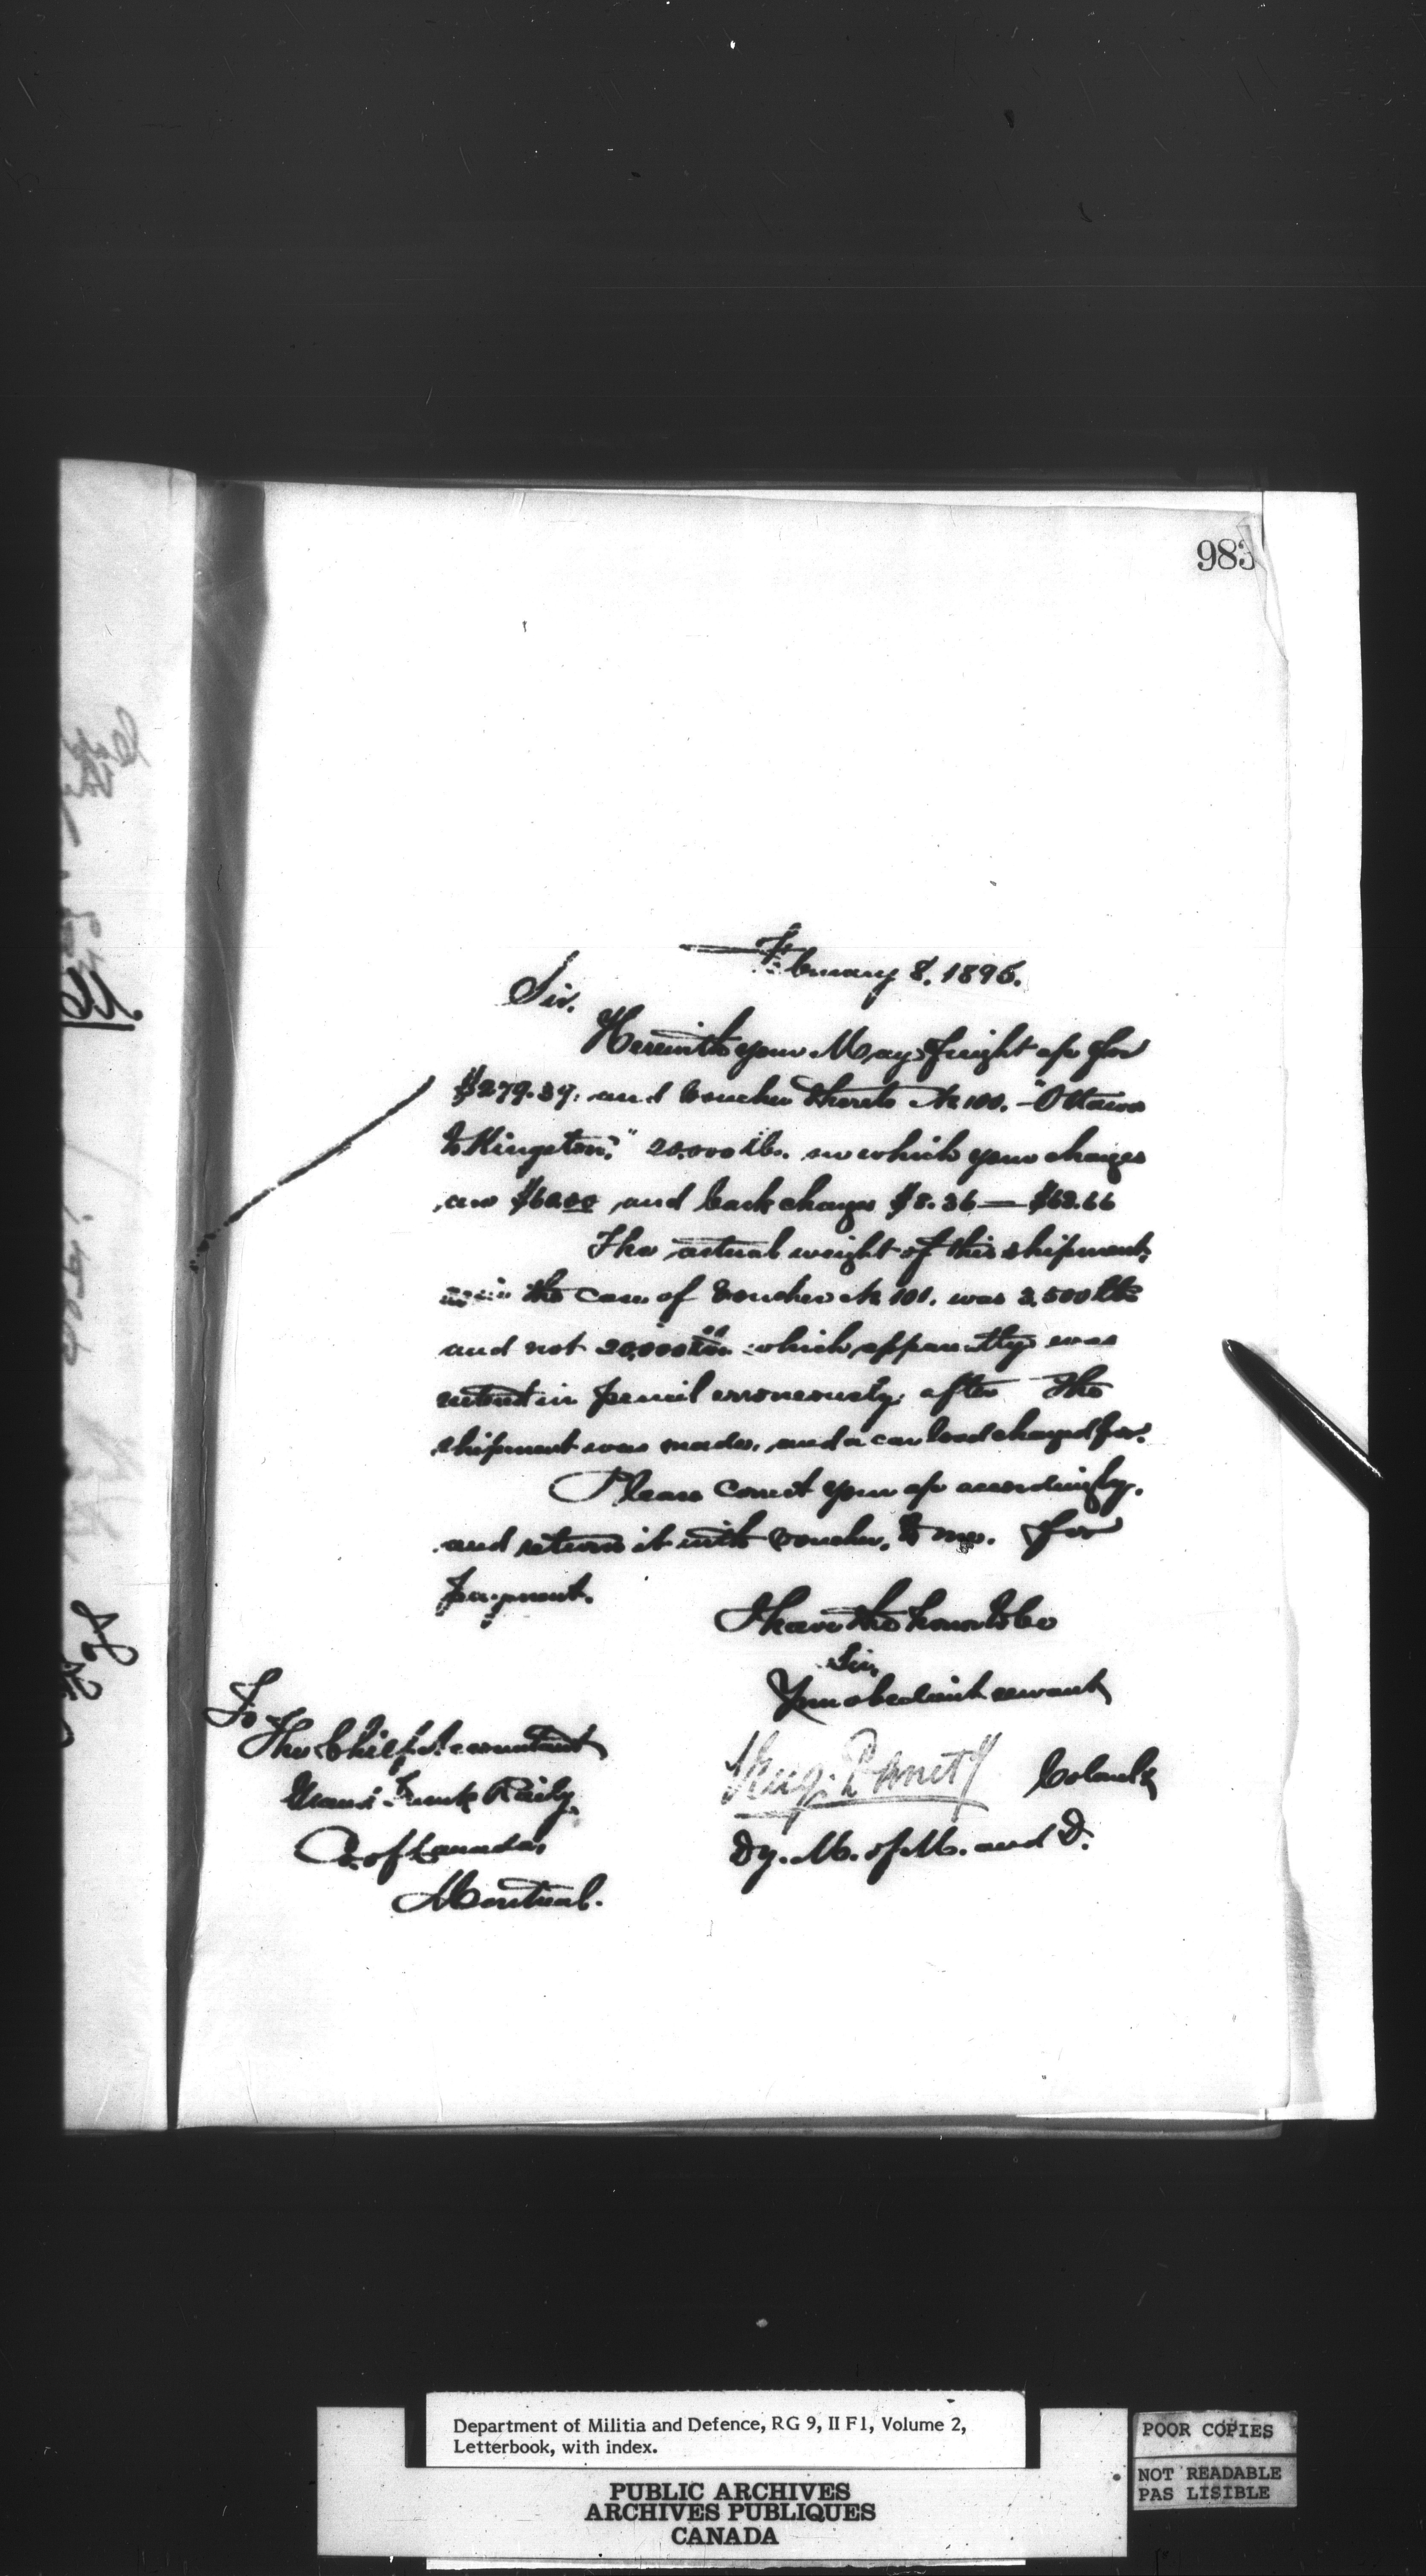 983
February 8. 1895.
Sir.
Herewith your May freight a/c for
$279.37. and voucher thereto No 100. "Ottawa
to Kingston," 20.000 lbs. in which your charges
are $60.00 and back charges $8.36 — $68.66
The actual weight of this shipment,
as in the case of voucher No 101. was 3,500 lbs
and not 20,000 lbs which apparently was
entered in pencil erroneously after the
shipment was made, and a car load charged for.
Please correct your a/c accordingly.
and return it with voucher, to me. for
payment.
I have the honor to be
Sir,
Your obedient servant
To
The Chief Accountant
Grand Trunk Railwy.
Co. of Canada,
Montreal.
Panet Colonel
Dy. M. of M. and D.
Department of Militia and Defence, RG 9, II F1, Volume 2,
Letterbook, with index.
PUBLIC ARCHIVES
ARCHIVES PUBLIQUES
CANADA
POOR COPIES
NOT READABLE
PAS LISIBLE